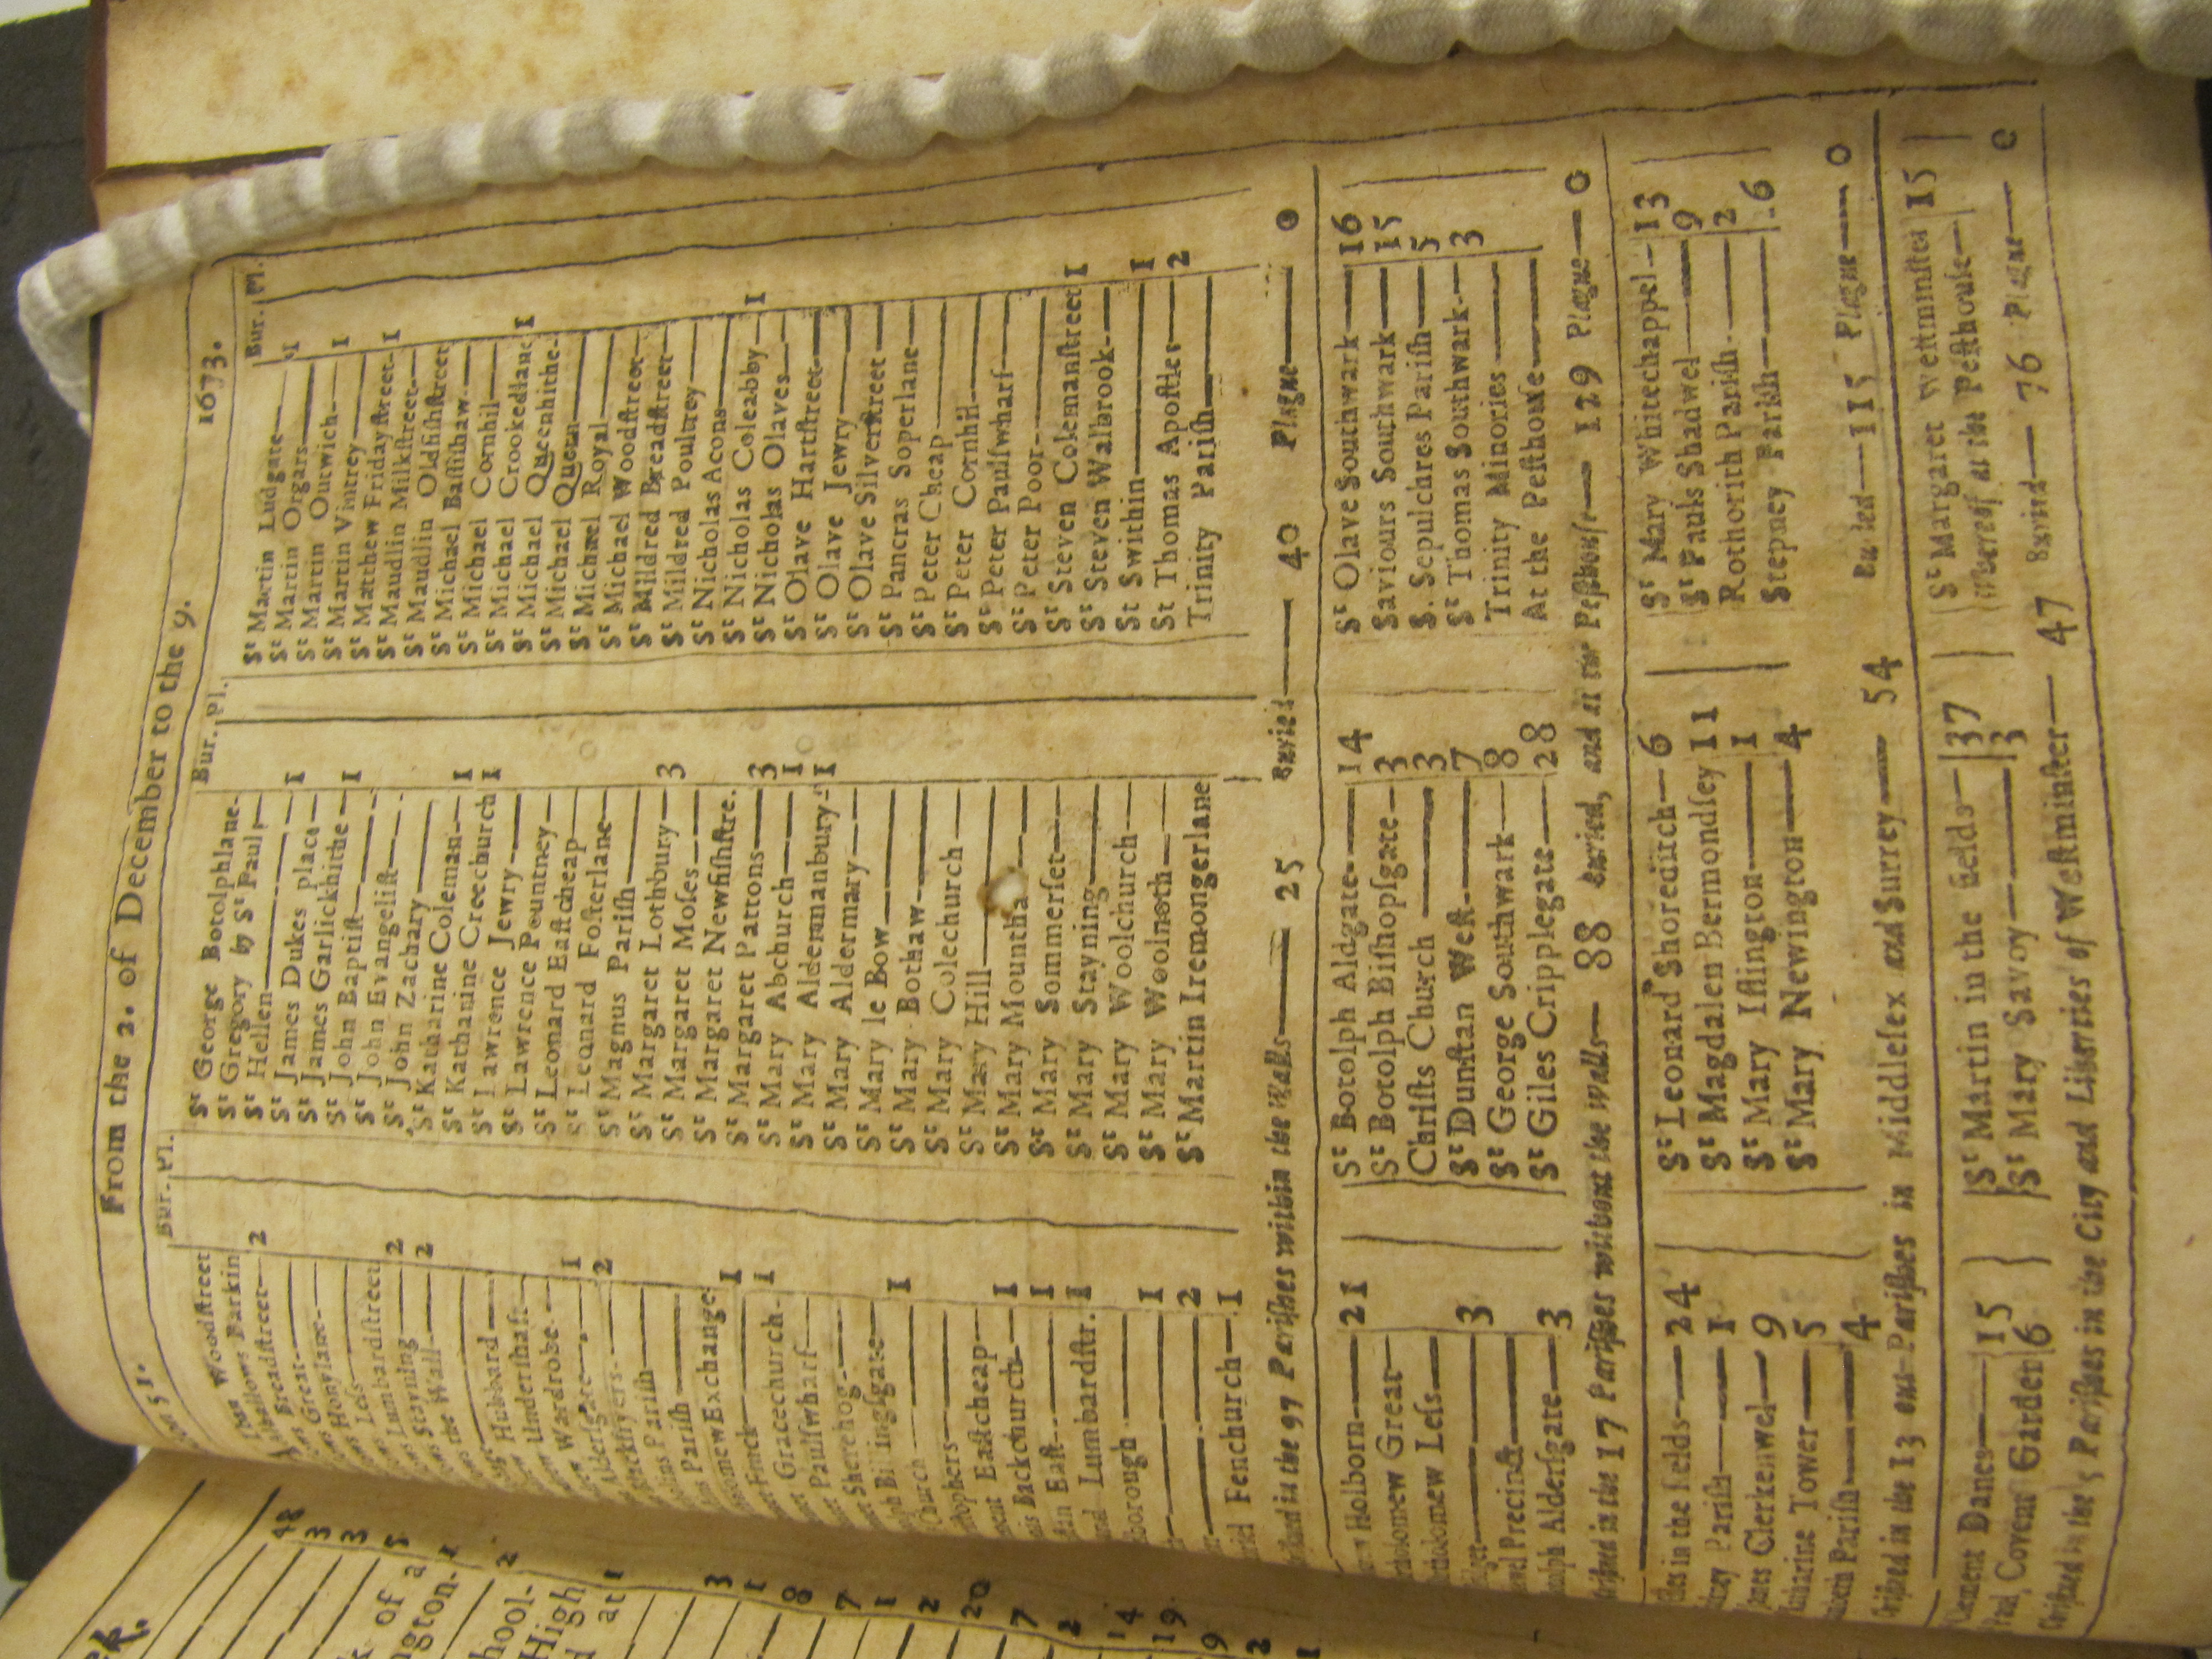 From the 2. of December to the 9. 1673.
Bur. Pl.
Woodstreet
Parkin
Breadstreet— 2
Great—
Honylane—
Less—
Lumbardstreet 2
Stayning— 2
the Wall—
Hubbard—
Undershaft—
Wardrobe— 1
Aldersgate— 2
Blackfryers—
Parish—
Parish—
Exchange 1
Finck— 1
Gracechurch—
Paulswharf—
Sherehog—
Billingsgate— 1
Church—
stophers—
Eastcheap— 1
Backchurch— 1
East— 1
Lumbardstr.
borough— 1
— 2
Fenchurch— 1
Bur. Pl.
St George Botolphlane—
St Gregory by St Pauls—
St Hellen—
St James Dukes place— 1
St James Garlickhithe—
St John Baptist— 1
St John Evangelist—
St John Zachary—
St Katharine Coleman— 1
St Katharine Creechurch 1
St Lawrence Jewry—
St Lawrence Pountney—
St Leonard Eastcheap—
St Leonard Fosterlane—
St Magnus Parish—
St Margaret Lothbury— 3
St Margaret Moses—
St Margaret Newfishstre.
St Margaret Pattons— 3
St Mary Abchurch— 1
St Mary Aldermanbury— 1
St Mary Aldermary—
St Mary le Bow—
St Mary Bothaw—
St Mary Colechurch—
St Mary Hill—
St Mary Mountha
St Mary Sommerset—
St Mary Stayning—
St Mary Woolchurch—
St Mary Woolnoth—
St Martin Iremongerlane
Bur. Pl.
St Martin Ludgate— 1
St Martin Orgars—
St Martin Outwich— 1
St Martin Vintrey—
St Matthew Fridaystreet— 1
St Maudlin Milkstreet—
St Maudlin Oldfishstreet
St Michael Bassishaw—
St Michael Cornhil—
St Michael Crookedlane 1
St Michael Queenhithe—
St Michael Quern—
St Michael Royal—
St Michael Woodstreet—
St Mildred Breadstreet—
St Mildred Poultrey—
St Nicholas Acons—
St Nicholas Coleabby— 1
St Nicholas Olaves—
St Olave Hartstreet—
St Olave Jewry—
St Olave Silverstreet—
St Pancras Soperlane—
St Peter Cheap—
St Peter Cornhil—
St Peter Paulswharf—
St Peter Poor—
St Steven Colemanstreet 1
St Steven Walbrook—
St Swithin— 1
St Thomas Apostles— 2
Trinity Parish—
in the 97 Parishes within the Walls— 25 Buried— 40 Plague— 0
Holborn— 21
Great—
Less—
— 3
Precinct—
Aldersgate— 3
St Botolph Aldgate— 14
St Botolph Bishopsgate— 3
Christs Church— 3
St Dunstan West— 7
St George Southwark— 8
St Giles Cripplegate— 28
St Olave Southwark— 16
Saviours Southwark— 15
S. Sepulchres Parish— 5
St Thomas Southwark— 3
Trinity Minories—
At the Pesthouse—
in the 17 Parishes without the walls— 88 Buried, and at the Pesthouse— 129 Plague— 0
in the fields— 24
Parish— 1
Clerkenwel— 9
Tower— 5
Parish— 4
St Leonard Shoreditch— 6
St Magdalen Bermondsey 11
St Mary Islington— 1
St Mary Newington— 4
St Mary Whitechappel— 13
St Pauls Shadwel— 9
Rothorith Parish— 2
Stepney Parish— 26
in the 13 out-Parishes in Middlesex and Surrey— 54 Buried— 115 Plague— 0
Clement Danes— 15
Paul Covent Garden 6
St Martin in the fields— 37
St Mary Savoy— 3
St Margaret Westminster 15
Whereof at the Pesthouse—
Christned in the 5 Parishes in the City and Liberties of Westminster— 47 Buried— 76 Plague— 0
48
3
3
5
of a
ngton. 1
2
hool-
High
at 1
3
1
8
7
1
2
20
7
2
14
19
9
2
1